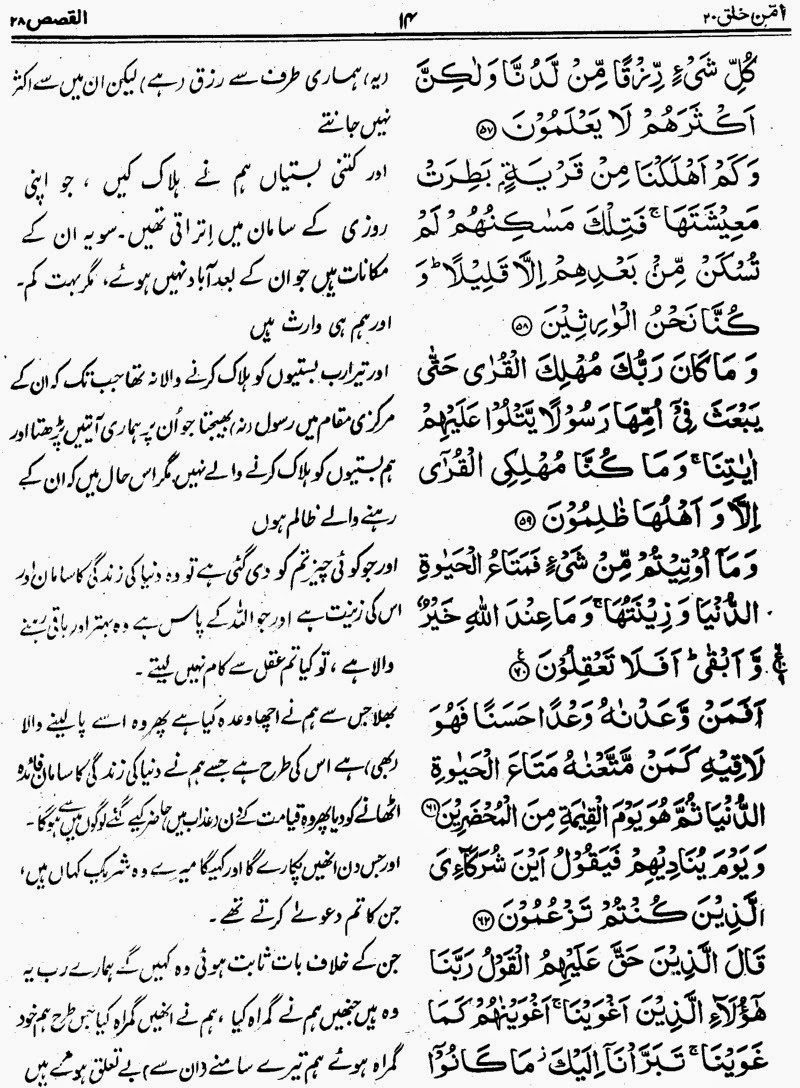 اَمَّن خلق ۲۰
۱۴
القصص ۲۸
كُلِّ شَىْءٍ رِّزْقًا مِّنْ لَّدُنَّا وَلٰكِنَّ
اَكْثَرَهُمْ لَا يَعْلَمُوْنَ ﴿۵۷﴾
وَكَمْ اَهْلَكْنَا مِنْ قَرْيَةٍ بَطِرَتْ
مَعِيْشَتَهَا ۚ فَتِلْكَ مَسٰكِنُهُمْ لَمْ
تُسْكَنْ مِّنْ بَعْدِهِمْ اِلَّا قَلِيْلًا ؕ وَ
كُنَّا نَحْنُ الْوٰرِثِيْنَ ﴿۵۸﴾
وَ مَا كَانَ رَبُّكَ مُهْلِكَ الْقُرٰى حَتّٰى
يَبْعَثَ فِىْۤ اُمِّهَا رَسُوْلًا يَّتْلُوْا عَلَيْهِمْ
اٰيٰتِنَا ۚ وَ مَا كُنَّا مُهْلِكِى الْقُرٰٓى
اِلَّا وَ اَهْلُهَا ظٰلِمُوْنَ ﴿۵۹﴾
وَ مَاۤ اُوْتِيْتُمْ مِّنْ شَىْءٍ فَمَتَاعُ الْحَيٰوةِ
الدُّنْيَا وَ زِيْنَتُهَا ۚ وَ مَا عِنْدَ اللهِ خَيْرٌ
وَّ اَبْقٰى ؕ اَفَلَا تَعْقِلُوْنَ ﴿۶۰﴾ ع
اَفَمَنْ وَّعَدْنٰهُ وَعْدًا حَسَنًا فَهُوَ
لَاقِيْهِ كَمَنْ مَّتَّعْنٰهُ مَتَاعَ الْحَيٰوةِ
الدُّنْيَا ثُمَّ هُوَ يَوْمَ الْقِيٰمَةِ مِنَ الْمُحْضَرِيْنَ ﴿۶۱﴾
وَ يَوْمَ يُنَادِيْهِمْ فَيَقُوْلُ اَيْنَ شُرَكَآءِىَ
الَّذِيْنَ كُنْتُمْ تَزْعُمُوْنَ ﴿۶۲﴾
قَالَ الَّذِيْنَ حَقَّ عَلَيْهِمُ الْقَوْلُ رَبَّنَا
هٰٓؤُلَآءِ الَّذِيْنَ اَغْوَيْنَا ۚ اَغْوَيْنٰهُمْ كَمَا
غَوَيْنَا ۚ تَبَرَّاْنَاۤ اِلَيْكَ ۫ مَا كَانُوْۤا
(یہ) ہماری طرف سے رزق (ہے) لیکن ان میں سے اکثر
نہیں جانتے
اور کتنی بستیاں ہم نے ہلاک کیں ، جو اپنی
روزی کے سامان میں اِتراتی تھیں۔ سو یہ ان کے
مکانات ہیں جو ان کے بعد آباد نہیں ہوئے، مگر بہت کم۔
اور ہم ہی وارث ہیں
اور تیرا رب بستیوں کو ہلاک کرنے والا نہ تھا جب تک کہ ان کے
مرکزی مقام میں رسول (نہ) بھیجتا جو اُن پر ہماری آیتیں پڑھتا اور
ہم بستیوں کو ہلاک کرنے والے نہیں مگر اس حال میں کہ ان کے
رہنے والے ظالم ہوں
اور جو کوئی چیز تم کو دی گئی ہے تو وہ دنیا کی زندگی کا سامان اور
اس کی زینت ہے اور جو اللہ کے پاس ہے وہ بہتر اور باقی رہنے
والا ہے ، تو کیا تم عقل سے کام نہیں لیتے ۔
بھلا جس سے ہم نے اچھا وعدہ کیا ہے پھر وہ اسے پالینے والا
(بھی) ہے اس کی طرح ہے جسے ہم نے دنیا کی زندگی کا سامان فائدہ
اٹھانے کو دیا پھر وہ قیامت کے دن (عذاب میں) حاضر کیے گئے لوگوں میں سے ہوگا۔
اور جس دن انھیں پکارے گا اور کہیگا میرے وہ شریک کہاں ہیں،
جن کا تم دعوےٰ کرتے تھے ۔
جن کے خلاف بات ثابت ہوئی وہ کہیں گے ہمارے رب یہ
وہ ہیں جنھیں ہم نے گمراہ کیا ، ہم نے انھیں گمراہ کیا جس طرح ہم خود
گمراہ ہوئے ہم تیرے سامنے (ان سے) بے تعلق ہوتے ہیں